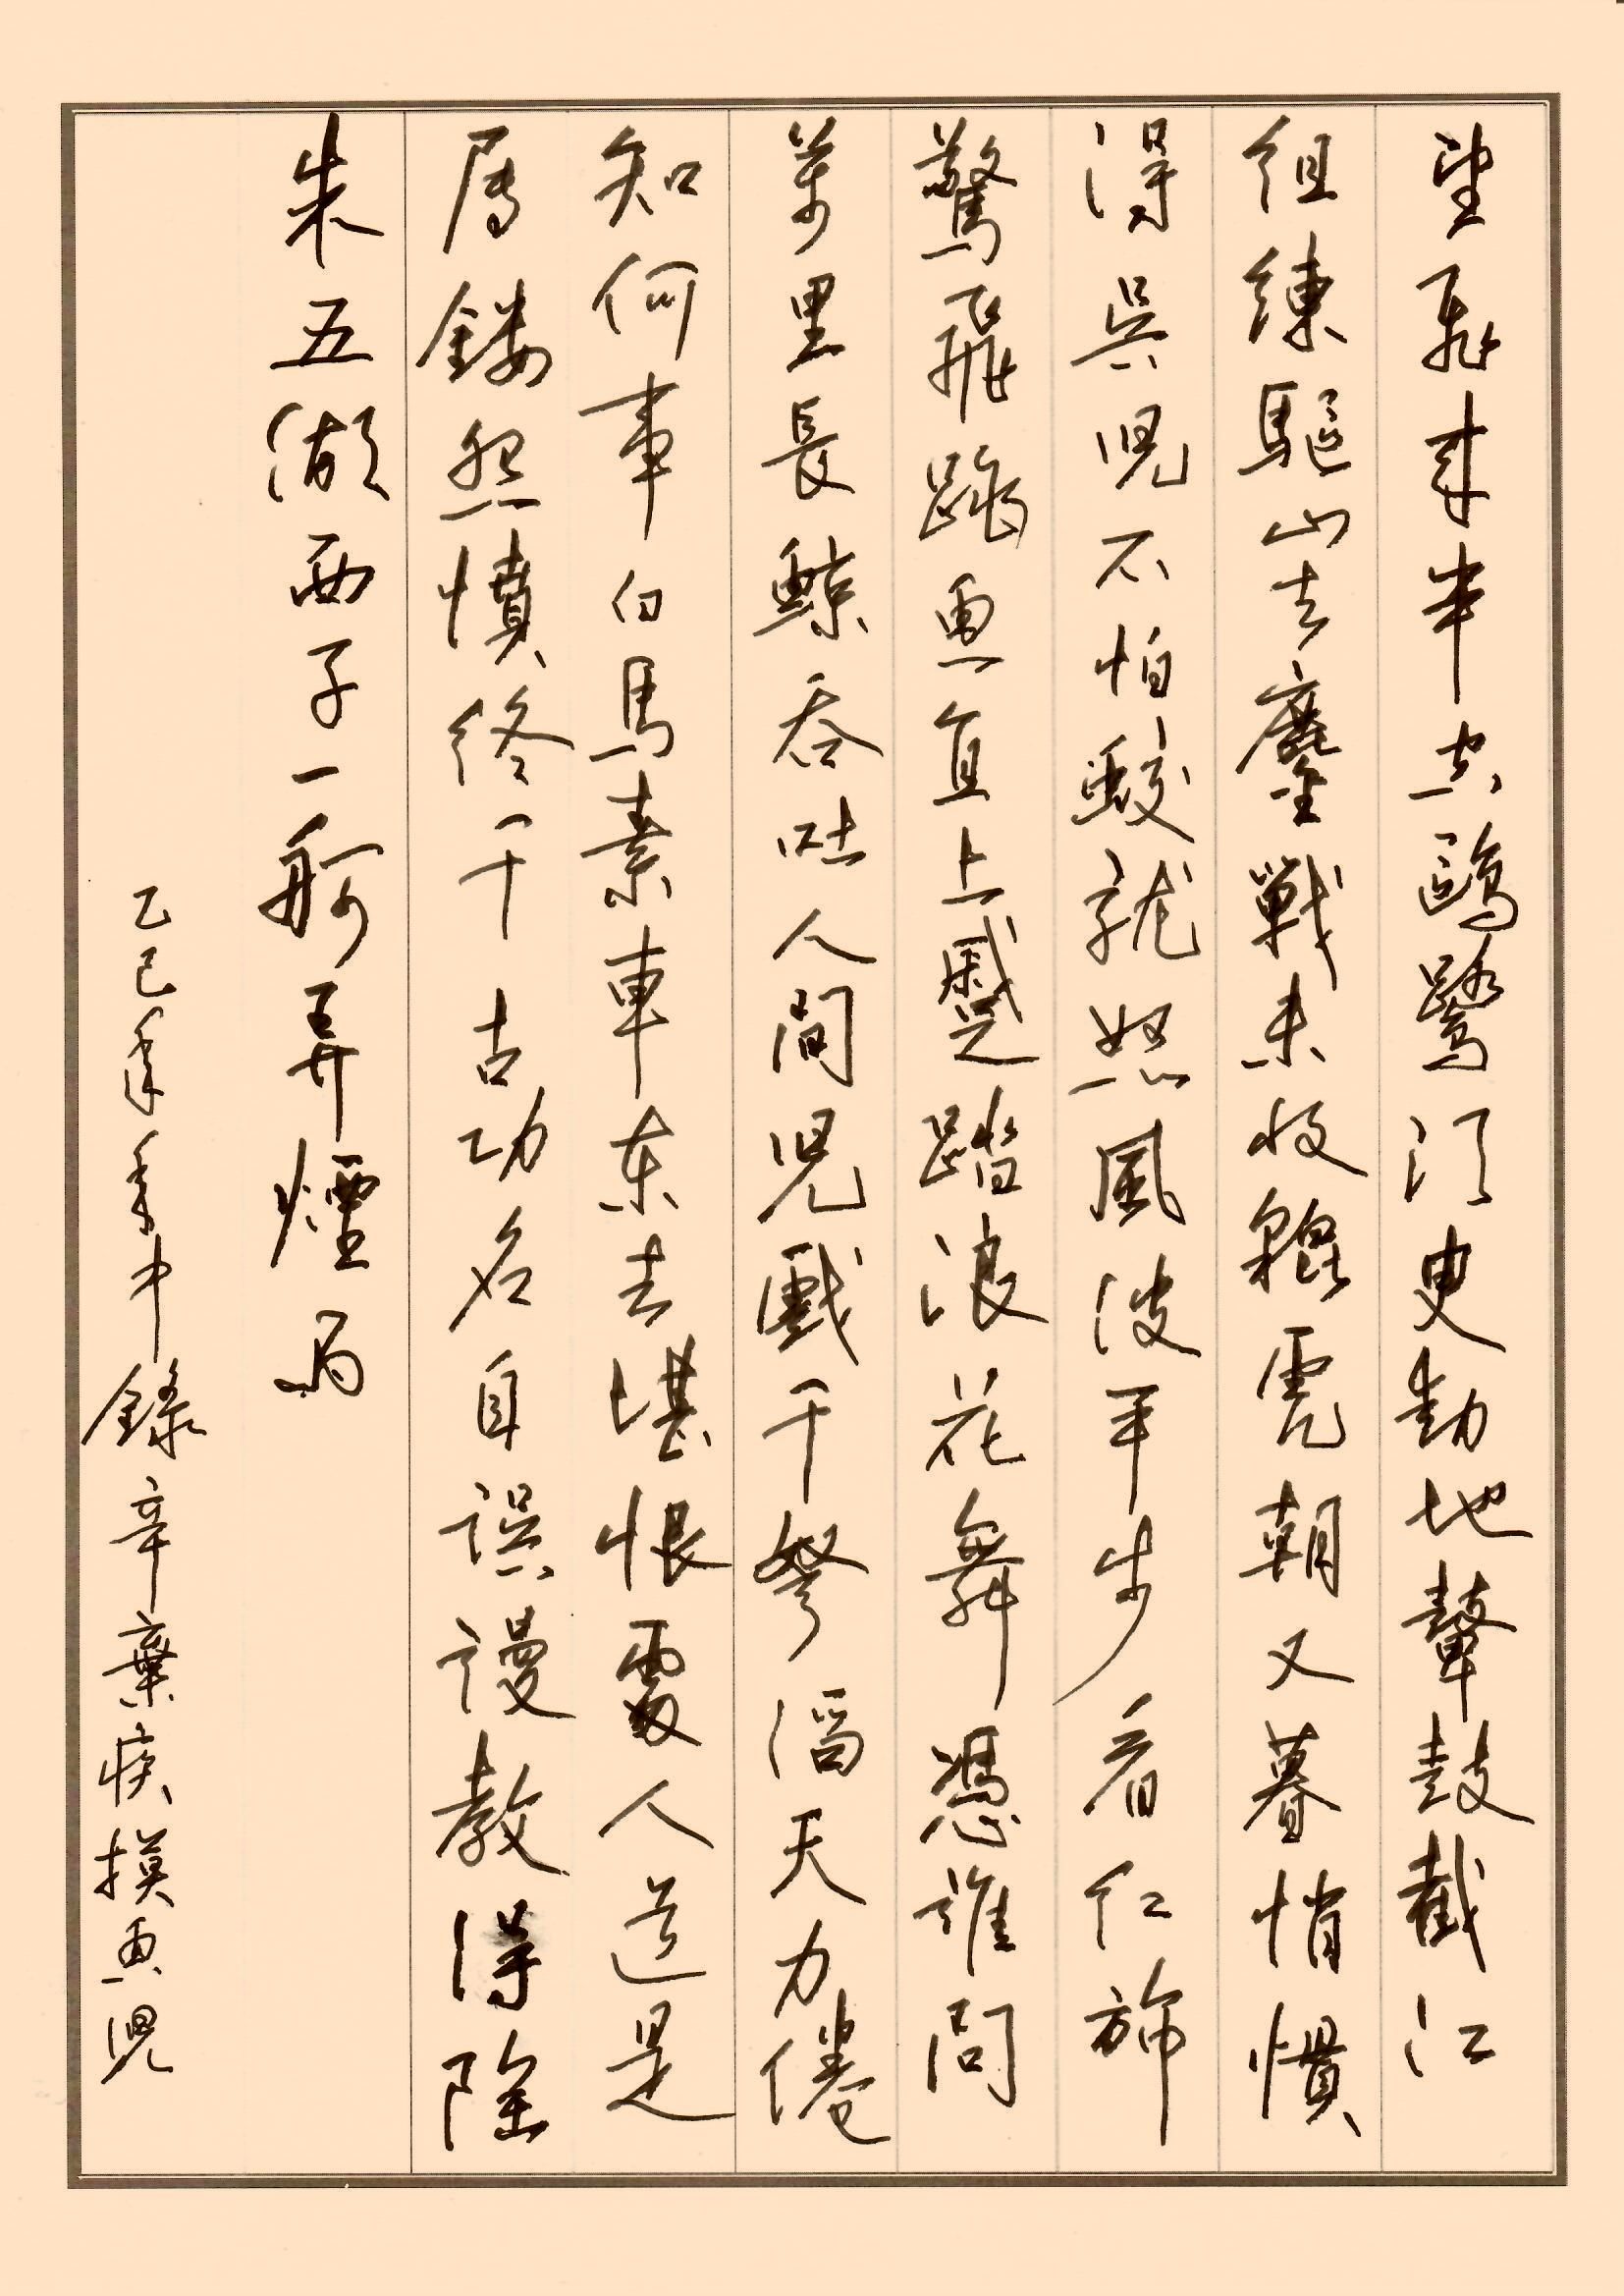 望飛來半空鷗鷺須臾動地鼙鼓截江
組練驅山去鏖戰未收貔虎朝又暮悄慣
得吳兒不怕蛟龍怒風波平步看紅旆
驚飛跳魚直上蹙踏浪花舞憑誰問
萬里長鯨吞吐人間兒戲千弩滔天力倦
知何事白馬素車東去堪恨處人道是
属鏤怨憤終千古功名自誤謾教得陶
朱五湖西子一舸弄煙雨
乙巳年中錄辛棄疾摸魚兒